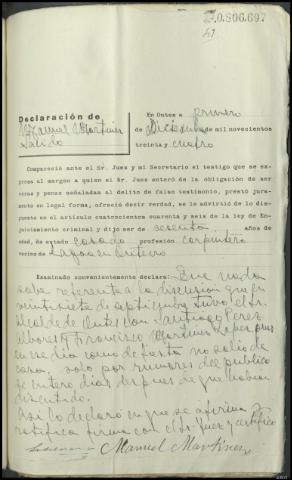 0.806.697
41
Declaración de
Manuel Martinez
Salido
En Outes a primero
de Diciembre de mil novecientos
treinta y cuatro
Compareció ante el Sr. Juez y mi Secretario el testigo que se ex-
presa al margen a quien el Sr. Juez enteró de la obligación de ser
veraz y penas señaladas al delito de falso testimonio, prestó jura-
mento en legal forma, ofreció desir verdad, se le advirtió de lo dis-
puesto en el artículo cuatrocientos cuarenta y seis de la ley de En-
juiciamiento criminal y dijo ser de sesenta años de
edad, de estado casado profesión carpintero
vecino de
Examinado convenientemente declara: Que nada
sabe referente a la discusion que en
veintisiete de septiembre tuvo el sr.
Alcalde de Outes Don Santiago Perez
y Francisco Martinez Lopez pues
en ese dia como de fiesta no salio de
casa, solo por rumores del publico
se entero dias despues de que habian
discutido.
Asi lo declaró en que se afirma y
ratifica firma con el Sr. Juez y certifico
Manuel Martinez